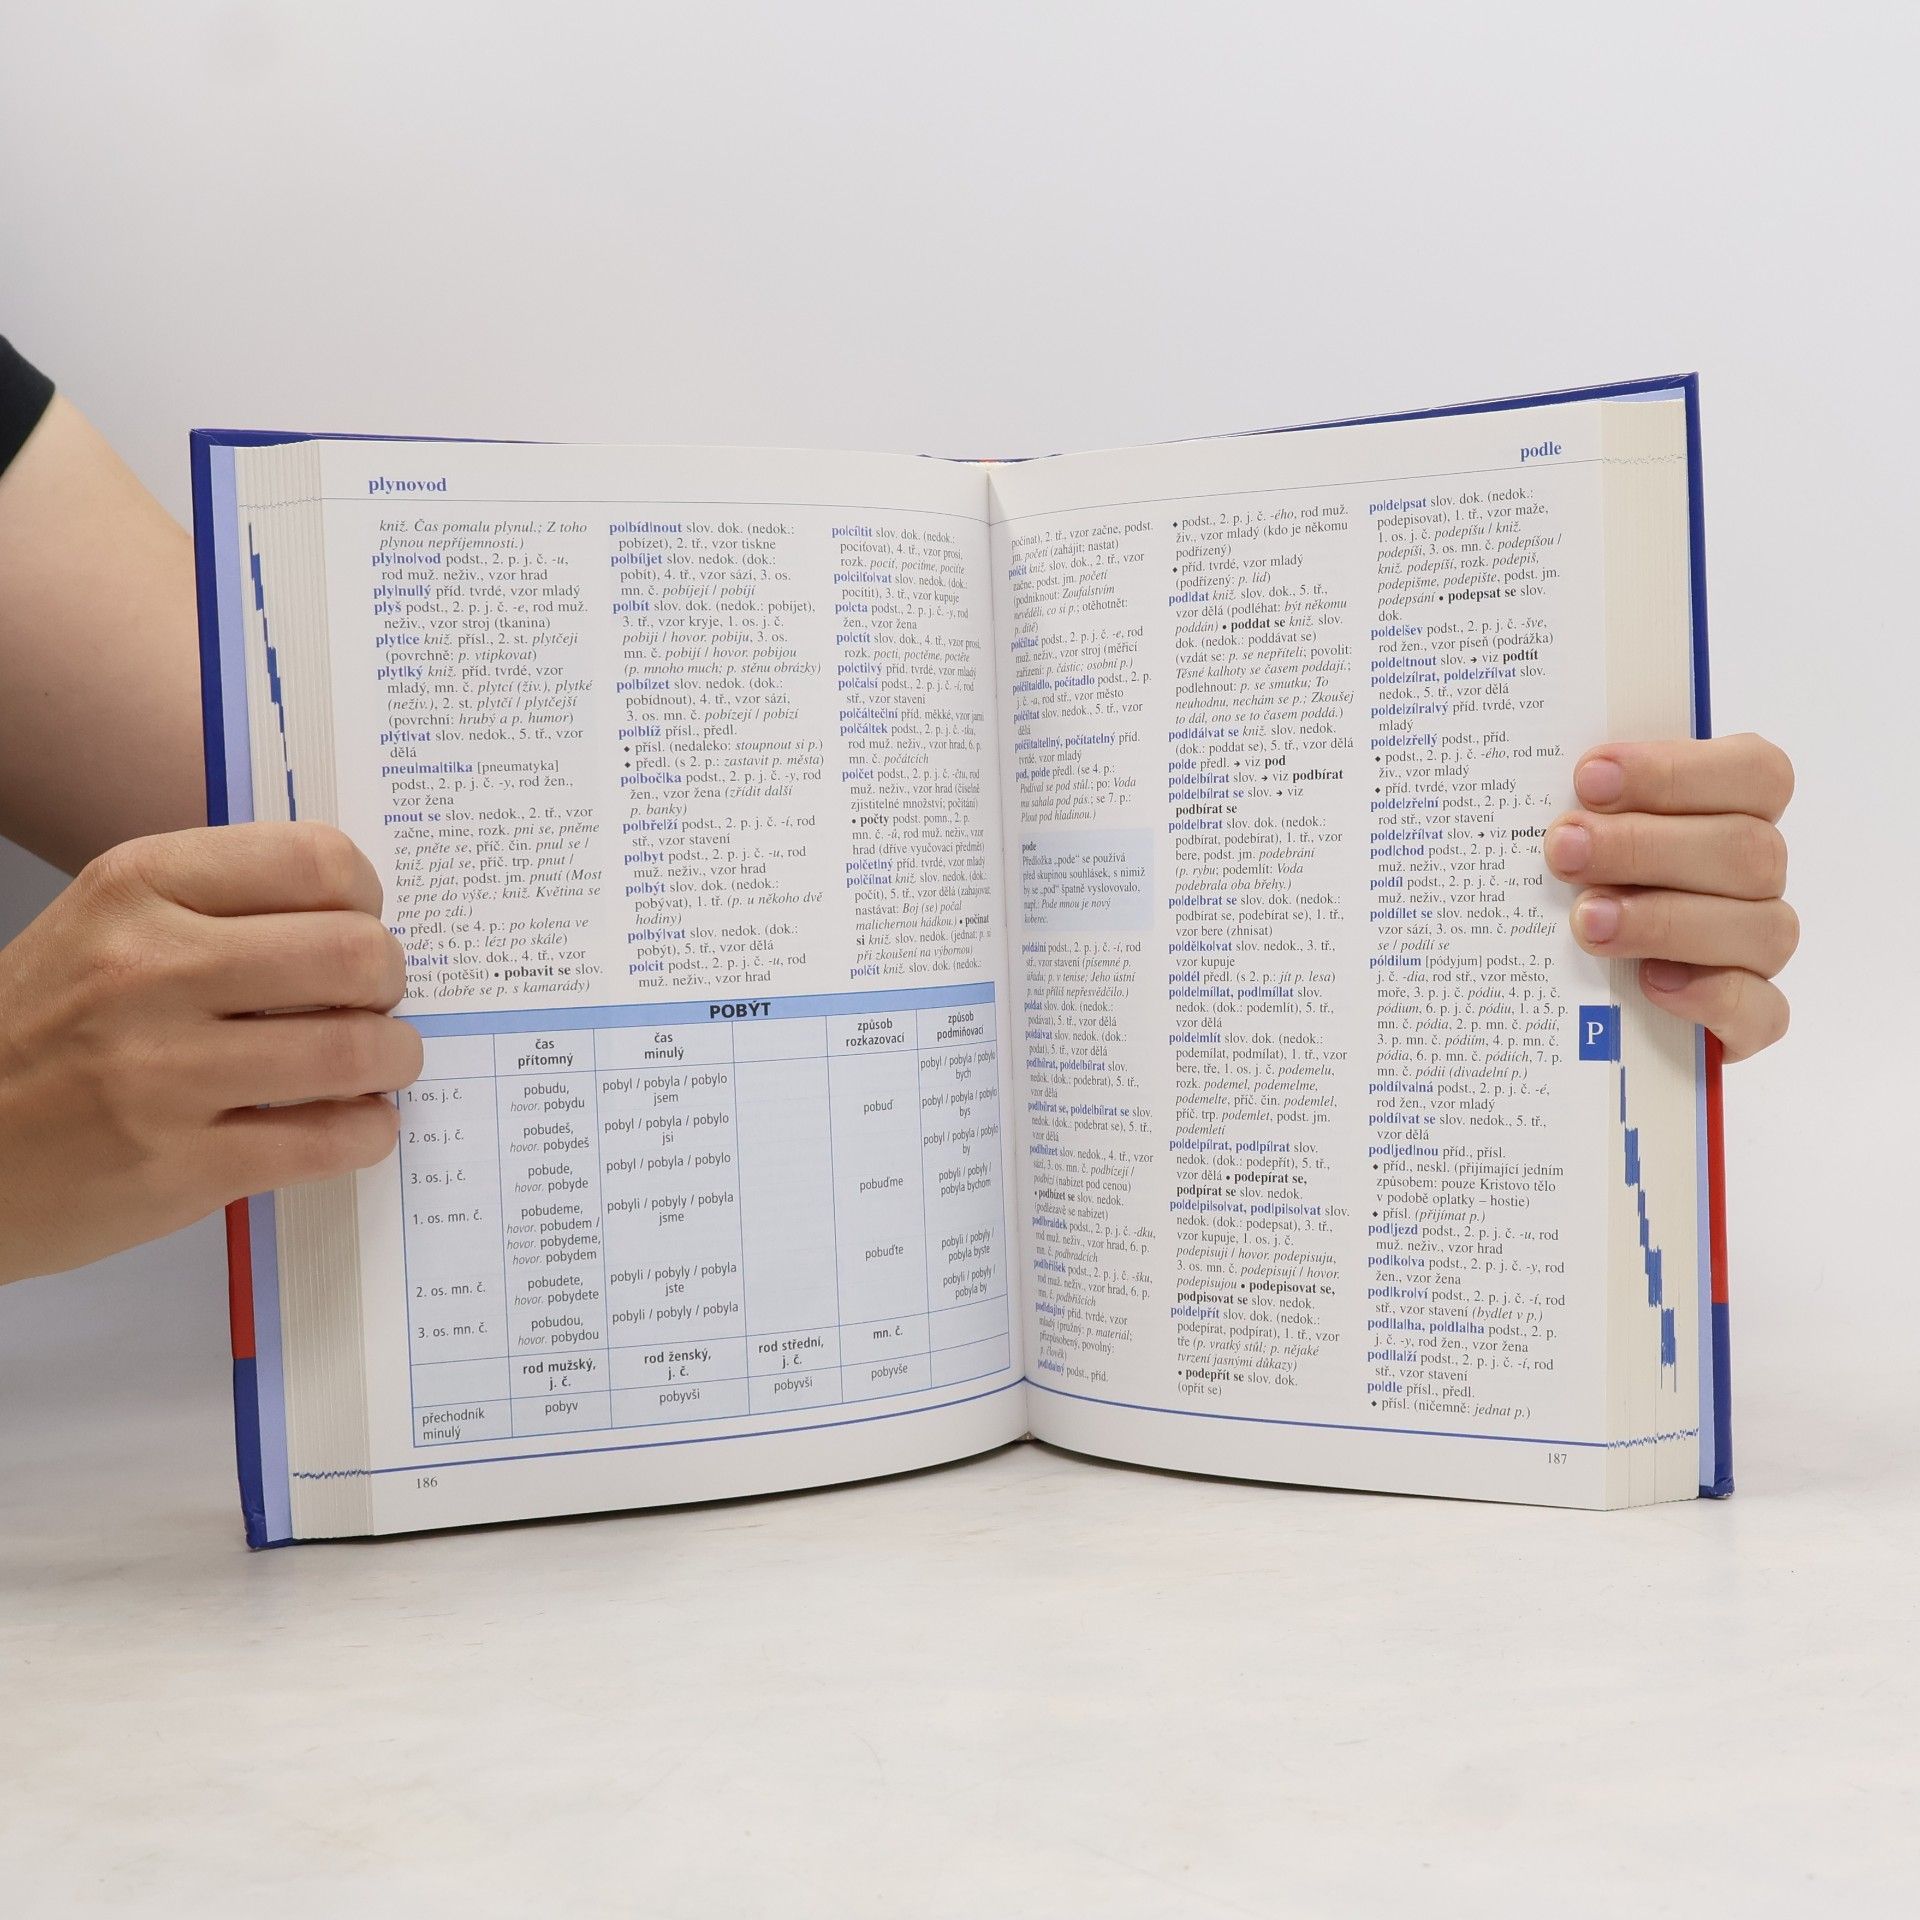 plynovod
kniž. Čas pomalu plynul.; Z toho
plynou nepříjemnosti.)
ply|no|vod podst., 2. p. j. č. -u,
rod muž. neživ., vzor hrad
ply|nu|lý příd. tvrdé, vzor mladý
plyš podst., 2. p. j. č. -e, rod muž.
neživ., vzor stroj (tkanina)
plyt|ce kniž. přísl., 2. st. plytčeji
(povrchně: p. vtipkovat)
plyt|ký kniž. příd. tvrdé, vzor
mladý, mn. č. plytcí (živ.), plytké
(neživ.), 2. st. plytčí / plytčejší
(povrchní: hrubý a p. humor)
plýt|vat slov. nedok., 5. tř., vzor
dělá
pneu|ma|ti|ka [pneumatyka]
podst., 2. p. j. č. -y, rod žen.,
vzor žena
pnout se slov. nedok., 2. tř., vzor
začne, mine, rozk. pni se, pněme
se, pněte se, příč. čin. pnul se /
kniž. pjal se, příč. trp. pnut /
kniž. pjat, podst. jm. pnutí (Most
se pne do výše.; kniž. Květina se
pne po zdi.)
po předl. (se 4. p.: po kolena ve
vodě; s 6. p.: lézt po skále)
slov. dok., 4. tř., vzor
prosí (potěšit) • pobavit se slov.
dok. (dobře se p. s kamarády)
po|bíd|nout slov. dok. (nedok.:
pobízet), 2. tř., vzor tiskne
po|bí|jet slov. nedok. (dok.:
pobít), 4. tř., vzor sází, 3. os.
mn. č. pobíjejí / pobíjí
po|bít slov. dok. (nedok.: pobíjet),
3. tř., vzor kryje, 1. os. j. č.
pobiji / hovor. pobiju, 3. os.
mn. č. pobijí / hovor. pobijou
(p. mnoho much; p. stěnu obrázky)
po|bí|zet slov. nedok. (dok.:
pobídnout), 4. tř., vzor sází,
3. os. mn. č. pobízejí / pobízí
po|blíž přísl., předl.
♦ přísl. (nedaleko: stoupnout si p.)
♦ předl. (s 2. p.: zastavit p. města)
po|boč|ka podst., 2. p. j. č. -y, rod
žen., vzor žena (zřídit další
p. banky)
po|bře|ží podst., 2. p. j. č. -í, rod
stř., vzor stavení
po|byt podst., 2. p. j. č. -u, rod
muž. neživ., vzor hrad
po|být slov. dok. (nedok.:
pobývat), 1. tř. (p. u někoho dvě
hodiny)
po|bý|vat slov. nedok. (dok.:
pobýt), 5. tř., vzor dělá
po|cit podst., 2. p. j. č. -u, rod
muž. neživ., vzor hrad
po|cí|tit slov. dok. (nedok.:
pociťovat), 4. tř., vzor prosí,
rozk. pociť, pociťme, pociťte
po|ci|ťo|vat slov. nedok. (dok.:
pocítit), 3. tř., vzor kupuje
po|cta podst., 2. p. j. č. -y, rod
žen., vzor žena
po|ctít slov. dok., 4. tř., vzor prosí,
rozk. pocti, poctěme, poctěte
po|cti|vý příd. tvrdé, vzor mladý
po|ča|sí podst., 2. p. j. č. -í, rod
stř., vzor stavení
po|čá|teč|ní příd. měkké, vzor jarní
po|čá|tek podst., 2. p. j. č. -tku,
rod muž. neživ., vzor hrad, 6. p.
mn. č. počátcích
po|čet podst., 2. p. j. č. -čtu, rod
muž. neživ., vzor hrad (číselně
zjistitelné množství; počítání)
• počty podst. pomn., 2. p.
mn. č. -ů, rod muž. neživ., vzor
hrad (dříve vyučovací předmět)
po|čet|ný příd. tvrdé, vzor mladý
po|čí|nat kniž. slov. nedok. (dok.:
počít), 5. tř., vzor dělá (zahajovat,
nastávat: Boj (se) počal
malichernou hádkou.) • počínat
si kniž. slov. nedok. (jednat: p. si
při zkoušení na výbornou)
po|čít kniž. slov. dok. (nedok.:
POBÝT
čas
přítomný
čas
minulý
způsob
rozkazovací
způsob
podmiňovací
1. os. j. č.
pobudu,
hovor. pobydu
pobyl / pobyla / pobylo
jsem
pobyl / pobyla / pobylo
bych
2. os. j. č.
pobudeš,
hovor. pobydeš
pobyl / pobyla / pobylo
jsi
pobuď
pobyl / pobyla / pobylo
bys
3. os. j. č.
pobude,
hovor. pobyde
pobyl / pobyla / pobylo
pobyl / pobyla / pobylo
by
1. os. mn. č.
pobudeme,
hovor. pobudem /
hovor. pobydeme,
hovor. pobydem
pobyli / pobyly / pobyla
jsme
pobuďme
pobyli / pobyly /
pobyla bychom
2. os. mn. č.
pobudete,
hovor. pobydete
pobyli / pobyly / pobyla
jste
pobuďte
pobyli / pobyly /
pobyla byste
3. os. mn. č.
pobudou,
hovor. pobydou
pobyli / pobyly / pobyla
pobyli / pobyly /
pobyla by
rod mužský,
j. č.
rod ženský,
j. č.
rod střední,
j. č.
mn. č.
přechodník
minulý
pobyv
pobyvši
pobyvši
pobyvše
186
podle
počínat), 2. tř., vzor začne, podst.
jm. početí (zahájit; nastat)
po|čít kniž. slov. dok., 2. tř., vzor
začne, podst. jm. početí
(podniknout: Zoufalstvím
nevěděli, co si p.; otěhotnět:
p. dítě)
po|čí|tač podst., 2. p. j. č. -e, rod
muž. neživ., vzor stroj (měřicí
zařízení: p. částic; osobní p.)
po|čí|ta|dlo, počítadlo podst., 2. p.
j. č. -a, rod stř., vzor město
po|čí|tat slov. nedok., 5. tř., vzor
dělá
po|čí|ta|tel|ný, počitatelný příd.
tvrdé, vzor mladý
pod, po|de předl. (se 4. p.:
Podíval se pod stůl.; po: Voda
mu sahala pod pás.; se 7. p.:
Plout pod hladinou.)
pode
Předložka „pode“ se používá
před skupinou souhlásek, s nimiž
by se „pod“ špatně vyslovovalo,
např.: Pode mnou je nový
koberec.
po|dá|ní podst., 2. p. j. č. -í, rod
stř., vzor stavení (písemné p.
úřadu; p. v tenise; Jeho ústní
p. nás příliš nepřesvědčilo.)
po|dat slov. dok. (nedok.:
podávat), 5. tř., vzor dělá
po|dá|vat slov. nedok. (dok.:
podat), 5. tř., vzor dělá
pod|bí|rat, po|de|bí|rat slov.
nedok. (dok.: podebrat), 5. tř.,
vzor dělá
pod|bí|rat se, po|de|bí|rat se slov.
nedok. (dok.: podebrat se), 5. tř.,
vzor dělá
pod|bí|zet slov. nedok., 4. tř., vzor
sází, 3. os. mn. č. podbízejí /
podbízí (nabízet pod cenou)
• podbízet se slov. nedok.
(podlézavě se nabízet)
pod|bra|dek podst., 2. p. j. č. -dku,
rod muž. neživ., vzor hrad, 6. p.
mn. č. podbradcích
pod|bři|šek podst., 2. p. j. č. -šku,
rod muž. neživ., vzor hrad, 6. p.
mn. č. podbřišcích
pod|daj|ný příd. tvrdé, vzor
mladý (pružný: p. materiál;
přizpůsobený, povolný:
p. člověk)
pod|da|ný podst., příd.
♦ podst., 2. p. j. č. -ého, rod muž.
živ., vzor mladý (kdo je někomu
podřízený)
♦ příd. tvrdé, vzor mladý
(podřízený: p. lid)
pod|dat kniž. slov. dok., 5. tř.,
vzor dělá (podléhat: být někomu
poddán) • poddat se kniž. slov.
dok. (nedok.: poddávat se)
(vzdát se: p. se nepříteli; povolit:
Těsné kalhoty se časem poddají.;
podlehnout: p. se smutku; To
neuhodnu, nechám se p.; Zkoušej
to dál, ono se to časem poddá.)
pod|dá|vat se kniž. slov. nedok.
(dok.: poddat se), 5. tř., vzor dělá
po|de předl. ➔ viz pod
po|de|bí|rat slov. ➔ viz podbírat
po|de|bí|rat se slov. ➔ viz
podbírat se
po|de|brat slov. dok. (nedok.:
podbírat, podebírat), 1. tř., vzor
bere, podst. jm. podebrání
(p. rybu; podemlít: Voda
podebrala oba břehy.)
po|de|brat se slov. dok. (nedok.:
podbírat se, podebírat se), 1. tř.,
vzor bere (zhnisat)
po|děl|ko|vat slov. nedok., 3. tř.,
vzor kupuje
po|dél předl. (s 2. p.: jít p. lesa)
po|de|mí|lat, pod|mí|lat slov.
nedok. (dok.: podemlít), 5. tř.,
vzor dělá
po|de|mlít slov. dok. (nedok.:
podemílat, podmílat), 1. tř., vzor
bere, tře, 1. os. j. č. podemelu,
rozk. podemel, podemelme,
podemelte, příč. čin. podemlel,
příč. trp. podemlet, podst. jm.
podemletí
po|de|pí|rat, pod|pí|rat slov.
nedok. (dok.: podepřít), 5. tř.,
vzor dělá • podepírat se,
podpírat se slov. nedok.
po|de|pi|so|vat, pod|pi|so|vat slov.
nedok. (dok.: podepsat), 3. tř.,
vzor kupuje, 1. os. j. č.
podepisuji / hovor. podepisuju,
3. os. mn. č. podepisují / hovor.
podepisujou • podepisovat se,
podpisovat se slov. nedok.
po|de|přít slov. dok. (nedok.:
podepírat, podpírat), 1. tř., vzor
tře (p. vratký stůl; p. nějaké
tvrzení jasnými důkazy)
• podepřít se slov. dok.
(opřít se)
po|de|psat slov. dok. (nedok.:
podepisovat), 1. tř., vzor maže,
1. os. j. č. podepíšu / kniž.
podepíši, 3. os. mn. č. podepíšou /
kniž. podepíší, rozk. podepiš,
podepišme, podepište, podst. jm.
podepsání • podepsat se slov.
dok.
po|de|šev podst., 2. p. j. č. -šve,
rod žen., vzor píseň (podrážka)
po|de|tnout slov. ➔ viz podtít
po|de|zí|rat, po|de|zří|vat slov.
nedok., 5. tř., vzor dělá
po|de|zí|ra|vý příd. tvrdé, vzor
mladý
po|de|zře|lý podst., příd.
♦ podst., 2. p. j. č. -ého, rod muž.
živ., vzor mladý
♦ příd. tvrdé, vzor mladý
po|de|zře|ní podst., 2. p. j. č. -í,
rod stř., vzor stavení
po|de|zří|vat slov. ➔ viz
pod|chod podst., 2. p. j. č. -u,
muž. neživ., vzor hrad
po|díl podst., 2. p. j. č. -u, rod
muž. neživ., vzor hrad
po|dí|let se slov. nedok., 4. tř.,
vzor sází, 3. os. mn. č. podílejí
se / podílí se
pó|di|um [pódyjum] podst., 2. p.
j. č. -dia, rod stř., vzor město,
moře, 3. p. j. č. pódiu, 4. p. j. č.
pódium, 6. p. j. č. pódiu, 1. a 5. p.
mn. č. pódia, 2. p. mn. č. pódií,
3. p. mn. č. pódiím, 4. p. mn. č.
pódia, 6. p. mn. č. pódiích, 7. p.
mn. č. pódii (divadelní p.)
po|dí|va|ná podst., 2. p. j. č. -é,
rod žen., vzor mladý
po|dí|vat se slov. nedok., 5. tř.,
vzor dělá
pod|jed|nou příd., přísl.
♦ příd., neskl. (přijímající jedním
způsobem: pouze Kristovo tělo
v podobě oplatky – hostie)
♦ přísl. (přijímat p.)
pod|jezd podst., 2. p. j. č. -u, rod
muž. neživ., vzor hrad
pod|ko|va podst., 2. p. j. č. -y, rod
žen., vzor žena
pod|kro|ví podst., 2. p. j. č. -í, rod
stř., vzor stavení (bydlet v p.)
pod|la|ha, po|dla|ha podst., 2. p.
j. č. -y, rod žen., vzor žena
pod|la|ží podst., 2. p. j. č. -í, rod
stř., vzor stavení
po|dle přísl., předl.
♦ přísl. (ničemně: jednat p.)
P
187